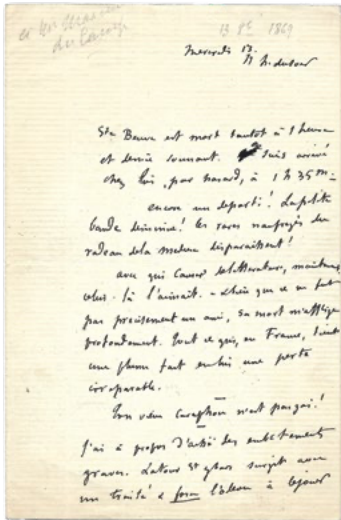 13 8bre 1869
Mercredi 13.
11 h. du soir
Ste Beuve est mort tantôt à 1 heure
et demie sonnant. Je suis arrivé
chez lui, par hasard, à 1 h 35 m.
encore un de parti ! La petite
bande diminue ! Les rares naufragés du
radeau de la méduse disparaissent !
avec qui causer de littérature, maintenant
celui-là l'aimait. - & bien que ce ne fut
pas précisément un ami, sa mort m'afflige
profondément. Tout ce qui, en France, tient
une plume fait en lui une perte
irréparable.
Ton vieux n'est pas gai !
J'ai à propos d' des embêtements
graves. Latour St Ybars surgit avec
un traité & force à ajourner